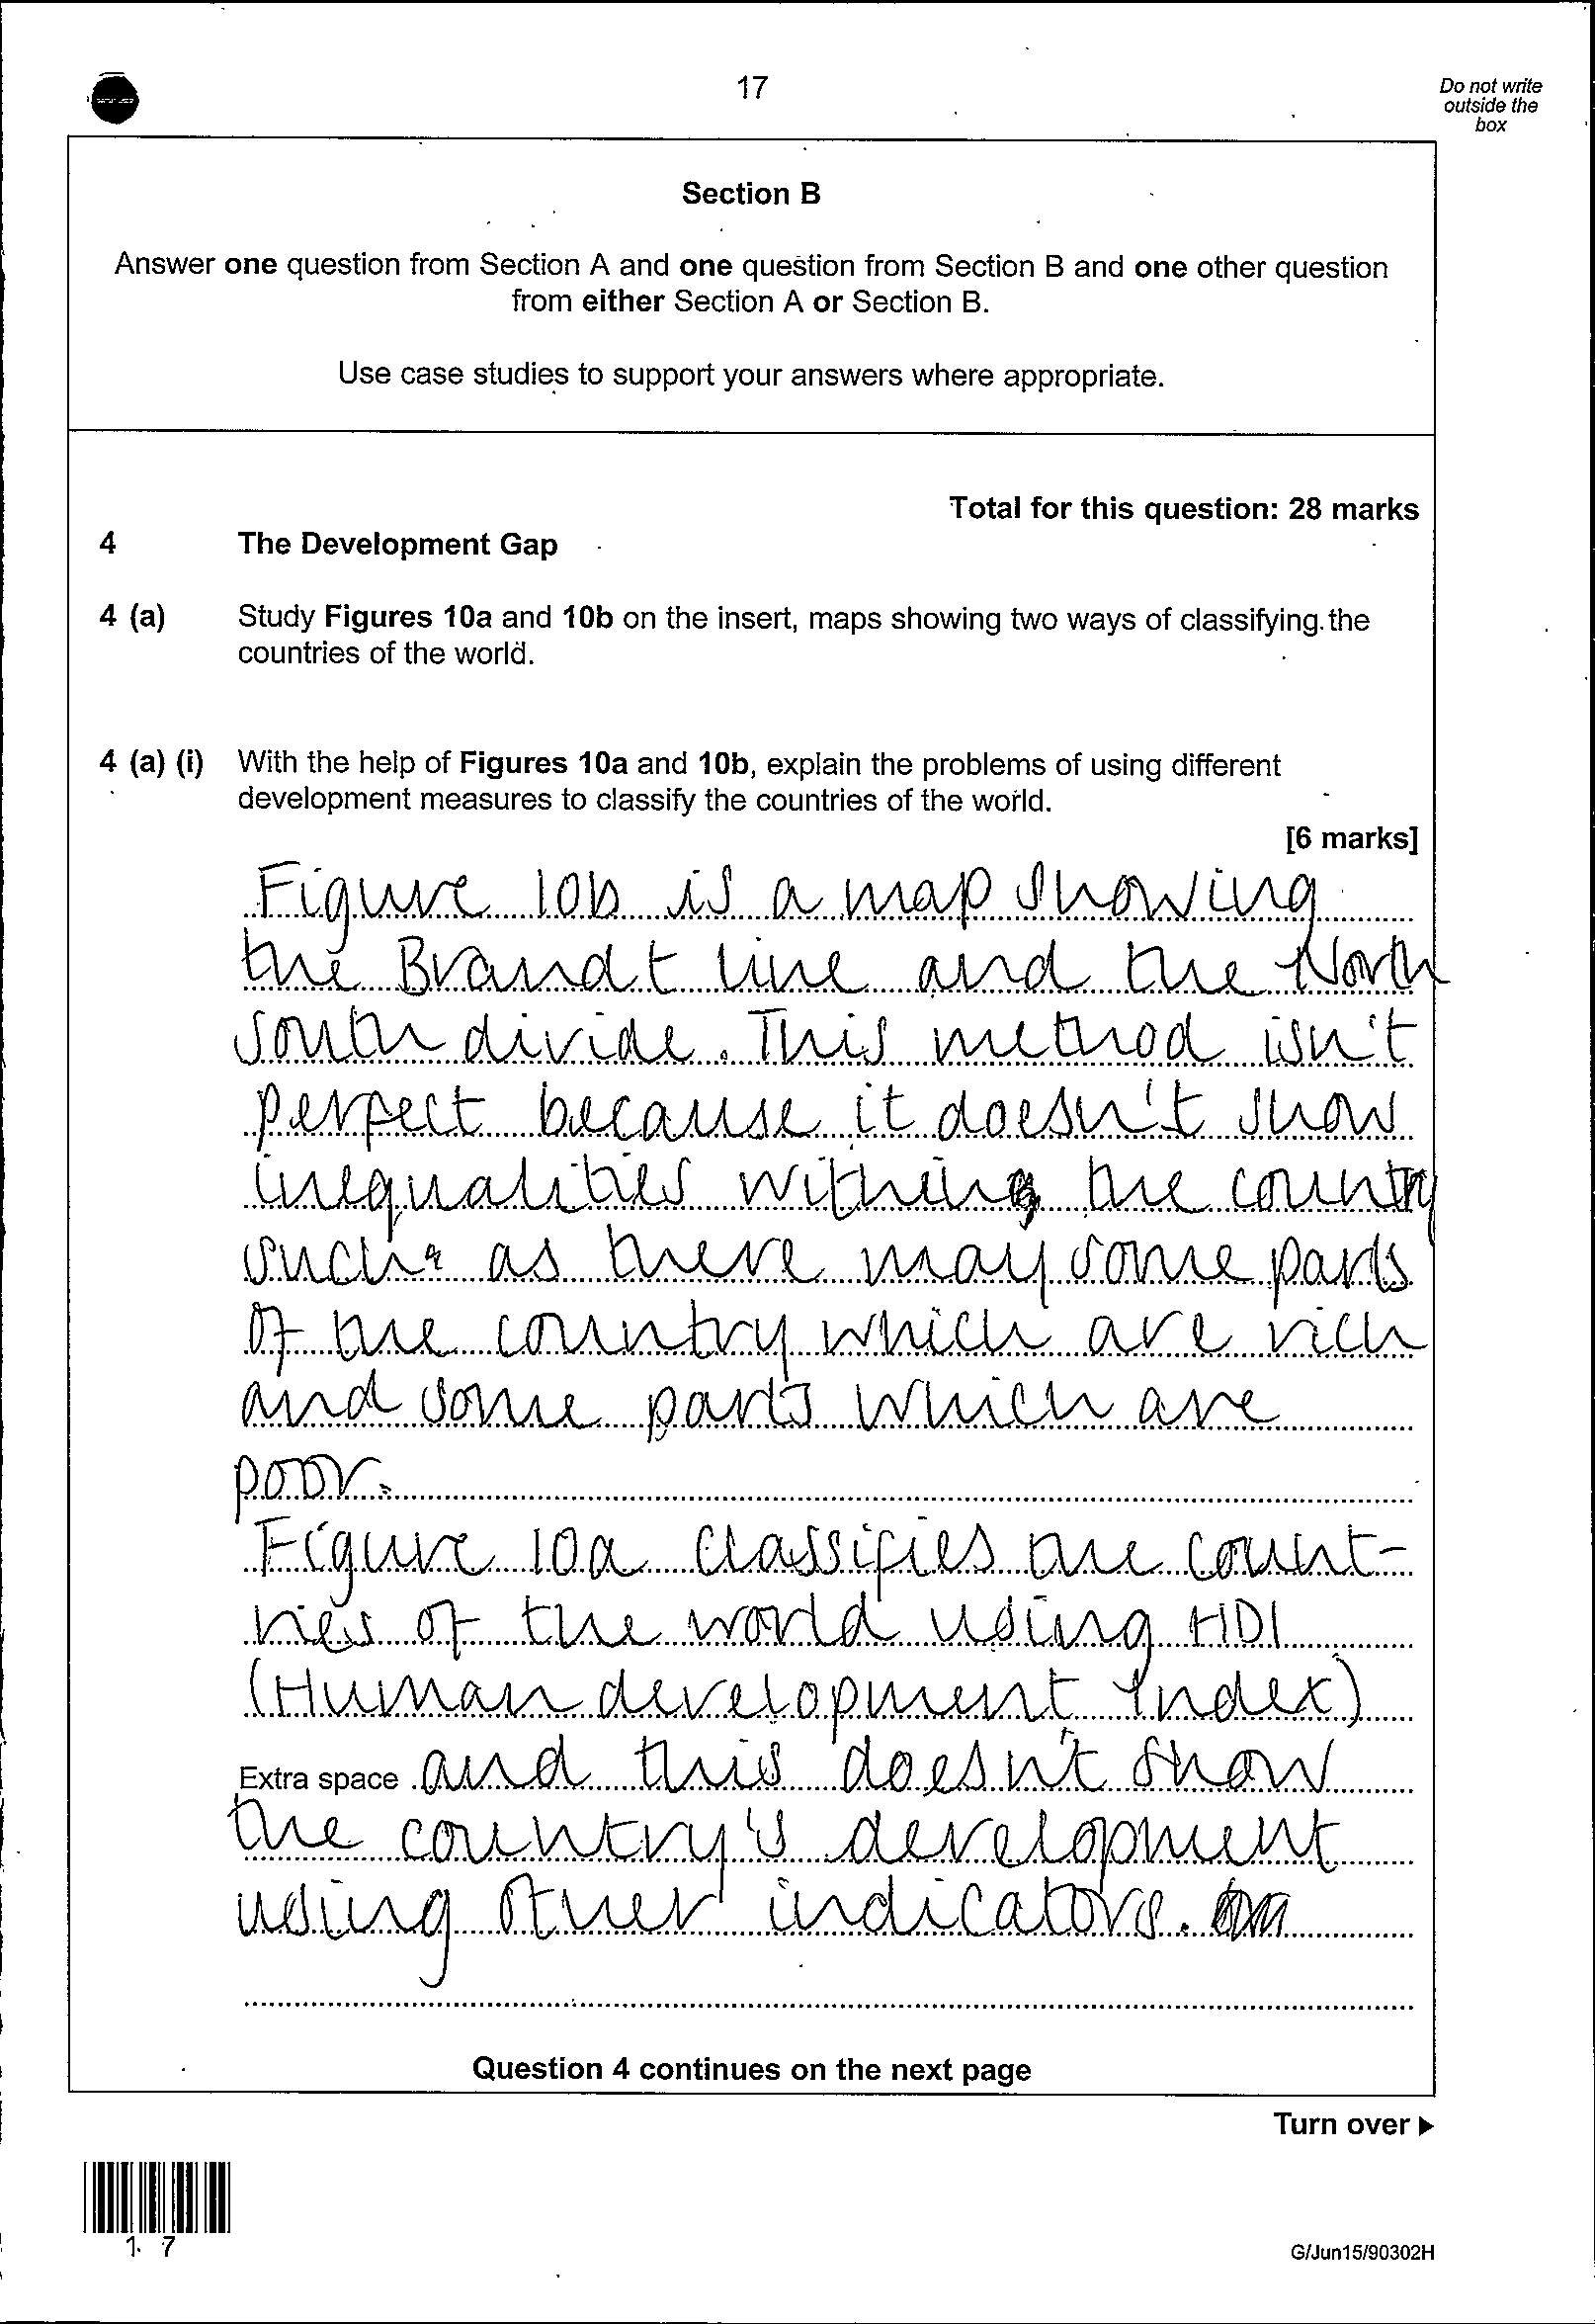 17
Do not write
outside the
box
Section B
Answer one question from Section A and one question from Section B and one other question
from either Section A or Section B.
Use case studies to support your answers where appropriate.
Total for this question: 28 marks
4 The Development Gap
4 (a) Study Figures 10a and 10b on the insert, maps showing two ways of classifying the
countries of the world.
4 (a) (i) With the help of Figures 10a and 10b, explain the problems of using different
development measures to classify the countries of the world.
[6 marks]
Figure 10b is a map showing
the Brandt line and the North
South divide. This method isn't
perfect because it doesn't show
inequalities within the country
such as there may some parts
of the country which are rich
and some parts which are
poor.
Figure 10a classifies the count-
ries of the world using HDI
(Human development Index)
Extra space and this doesn't show
the country's development
using other indicators.
Question 4 continues on the next page
Turn over ►
1 7
G/Jun15/90302H